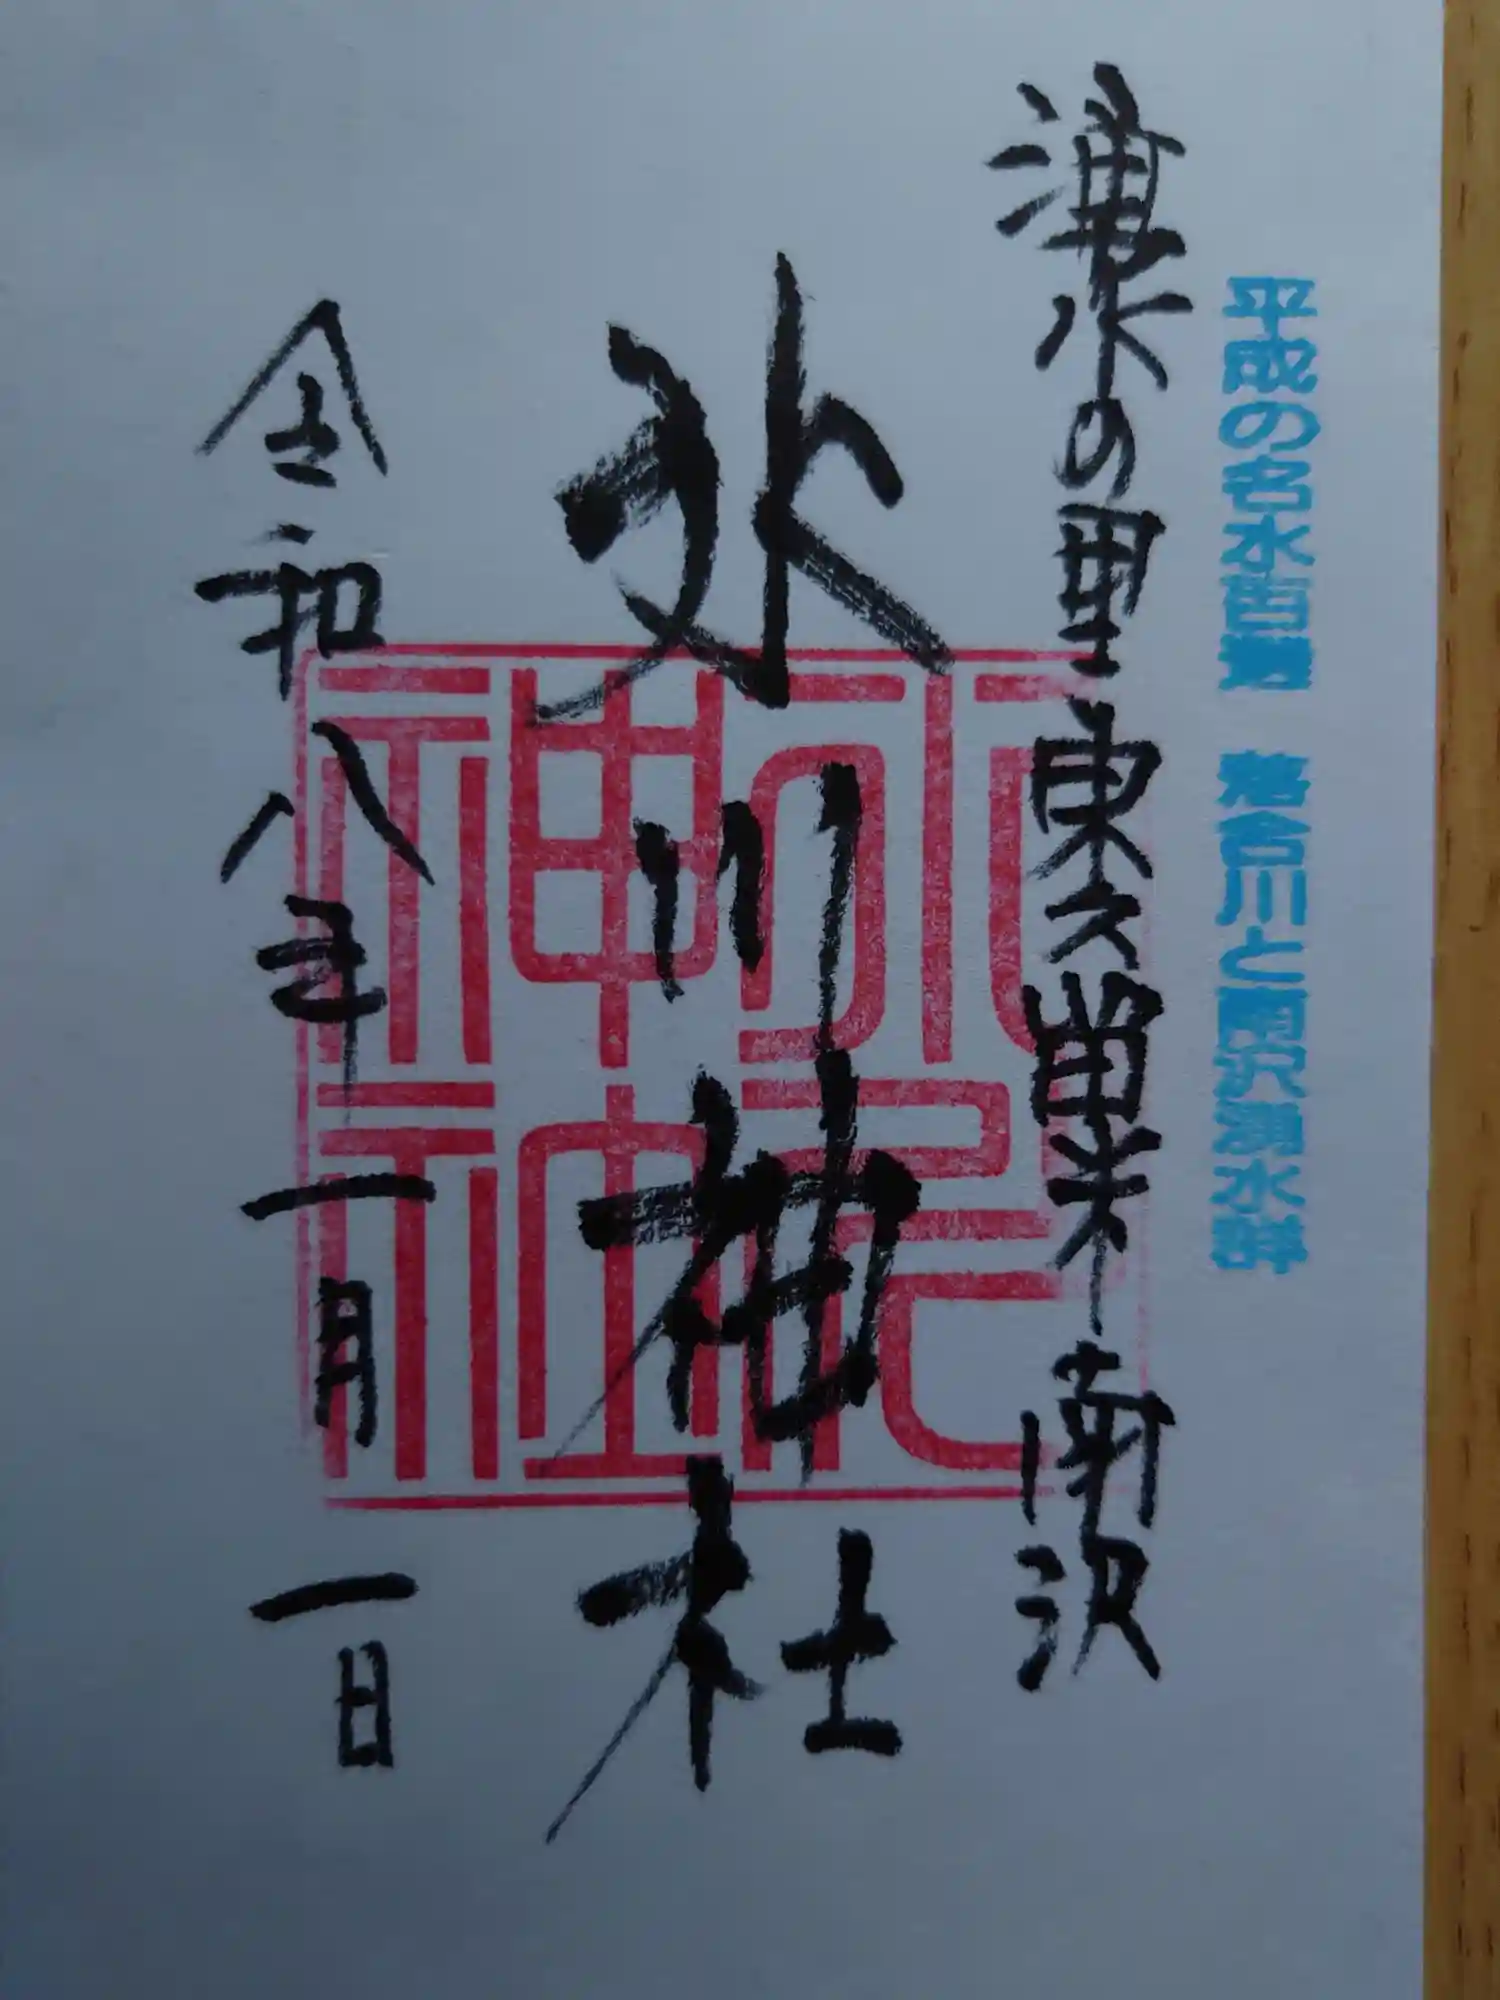 平成の名水百選 落合川と南沢湧水群
湧水の里東久留米南沢
氷川神社
令和八年一月一日